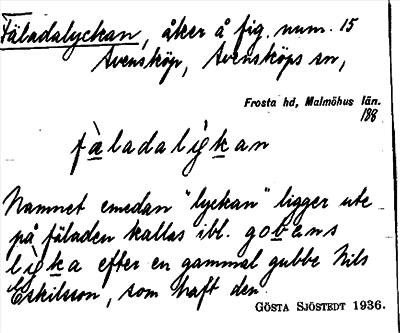 Fäladalyckan, åker å fig. num. 15
Svensköp, Svensköps sn,
Frosta hd, Malmöhus län.
188
fàladalỳkan
Namnet emedan "lyckan" ligger ute
på fäladen kallas ibl. gobens
lỳka efter en gammal gubbe Nils
Eskilsson, som haft den.
GÖSTA SJÖSTEDT 1936.